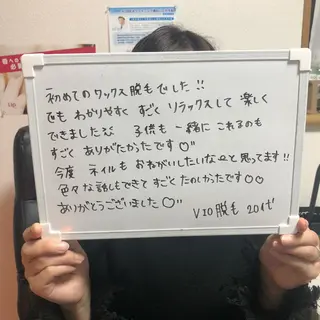 初めてのワックス脱毛でした!!
でも わかりやすく すごく リラックスして 楽しく
できました 子供も 一緒に これるのも
すごく ありがたかったです♡
今度 ネイルも おねがいしたいなーと 思ってます!!
色々な話しもできて すごく たのしかったです♡♡
ありがとうございました♡
VIO脱毛 20代